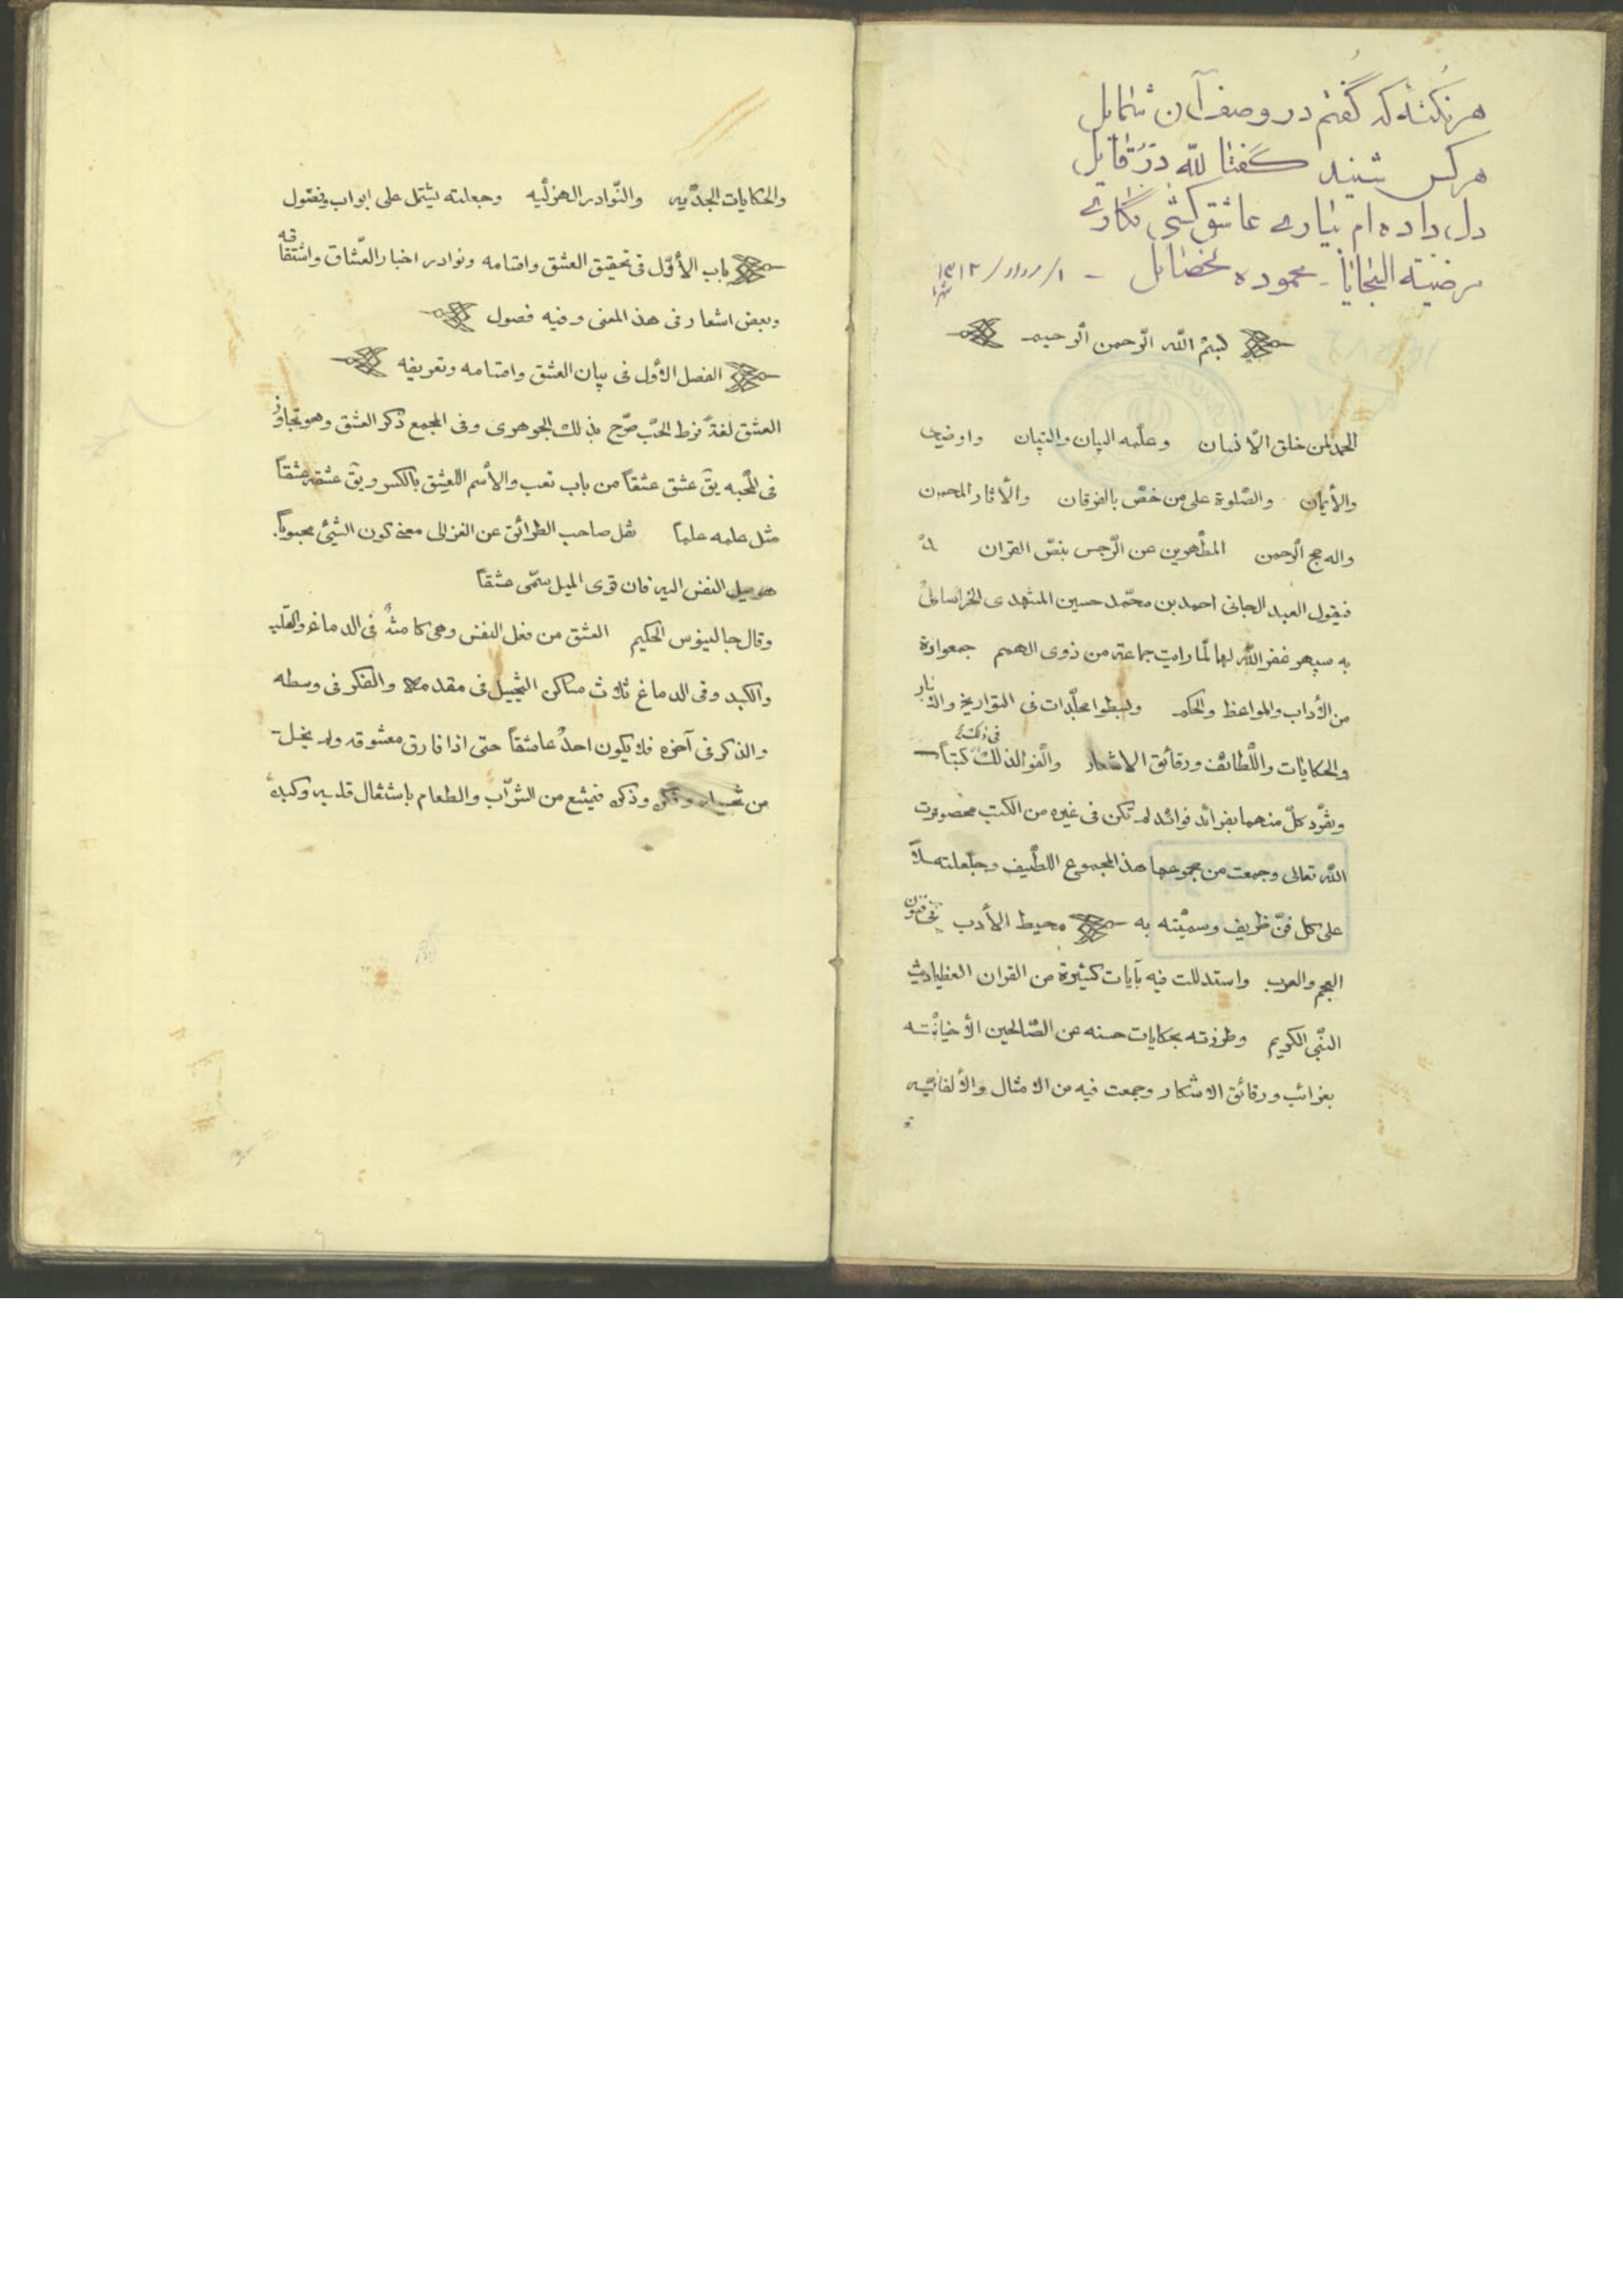 هر نکته که گفتم در وصف آن شمایل
هر کس شنید گفتا لله درّ قایل
دل داده ام بیاری عاشق کشی نگاری
مرضیّة السجایا - محموده خصایل -
بسم الله الرّحمن الرّحیم
الحمد لمن خلق الأنسان وعلّمه البیان والتبیان واوضح
والأیمان والصّلوة علی من خصّ بالفرقان والأثار
واله حجج الرّحمن المطّهرین عن الرّجس بنصّ القران
فیقول العبد الجانی احمد بن محمّد حسین المشهدی الخراسانی
به سپهر غفر الله لهما لمّا رایت جماعة من ذوی الهمم جمعوا
من الأداب والمواعظ والحکم وبسطوا مجلّدات فی التواریخ والأثار
والحکایات واللّطائف ورقائق الاشعار والّفوا لذلک کتباً
وتفرّد کلّ منهما بفرائد فوائد لم تکن فی غیره من الکتب
الله تعالی وجمعت من مجموعها هذ المجموع اللّطیف وجعلته
علی کل فنّ ظریف وسمیّته به محیط الأدب فی فنون
العجم والعرب واستدللت فیه بآیات کثیرة من القران
النّبی الکریم وطرزته بحکایات حسنه عن الصّالحین
بغرائب ورقائق الاشعار وجمعت فیه من الامثال
والحکایات الجدّیه والنّوادر الهزلّیه وجعلته یشتمل علی ابواب وفصول
باب الأوّل فی تحقیق العشق واقسامه ونوادر اخبار العشّاق واشتقاقه
وبعض اشعار فی هذ المعنی وفیه فصول
الفصل الأول فی بیان العشق واقسامه وتعریفه
العشق لغةً فرط الحبّ صرّح بذلک الجوهری وفی المجمع ذکر العشق وهو تجاوز
فی المحّبه یق عشق عشقاً من باب تعب والأسم العِشق بالکسر ویق عشقه عشقاً
مثل علمه علماً نقل صاحب الطرائق عن الغزالی معنی کون الشیئ محبوباً
هو میل النفس الیه فان قوی المیل سمّی عشقاً
وقال جالینوس الحکیم العشق من فعل النفس وهی کامنةٌ فی الدماغ والقلب
والکبد وفی الدماغ ثلاث مساکن التخییل فی مقدمه والفکر فی وسطه
والذکر فی آخره فلا یکون احدٌ عاشقاً حتی اذا فارق معشوقه لم یخل
من وفکره وذکره فیمتنع من الشرّاب والطعام باشتغال قلبه وکبده